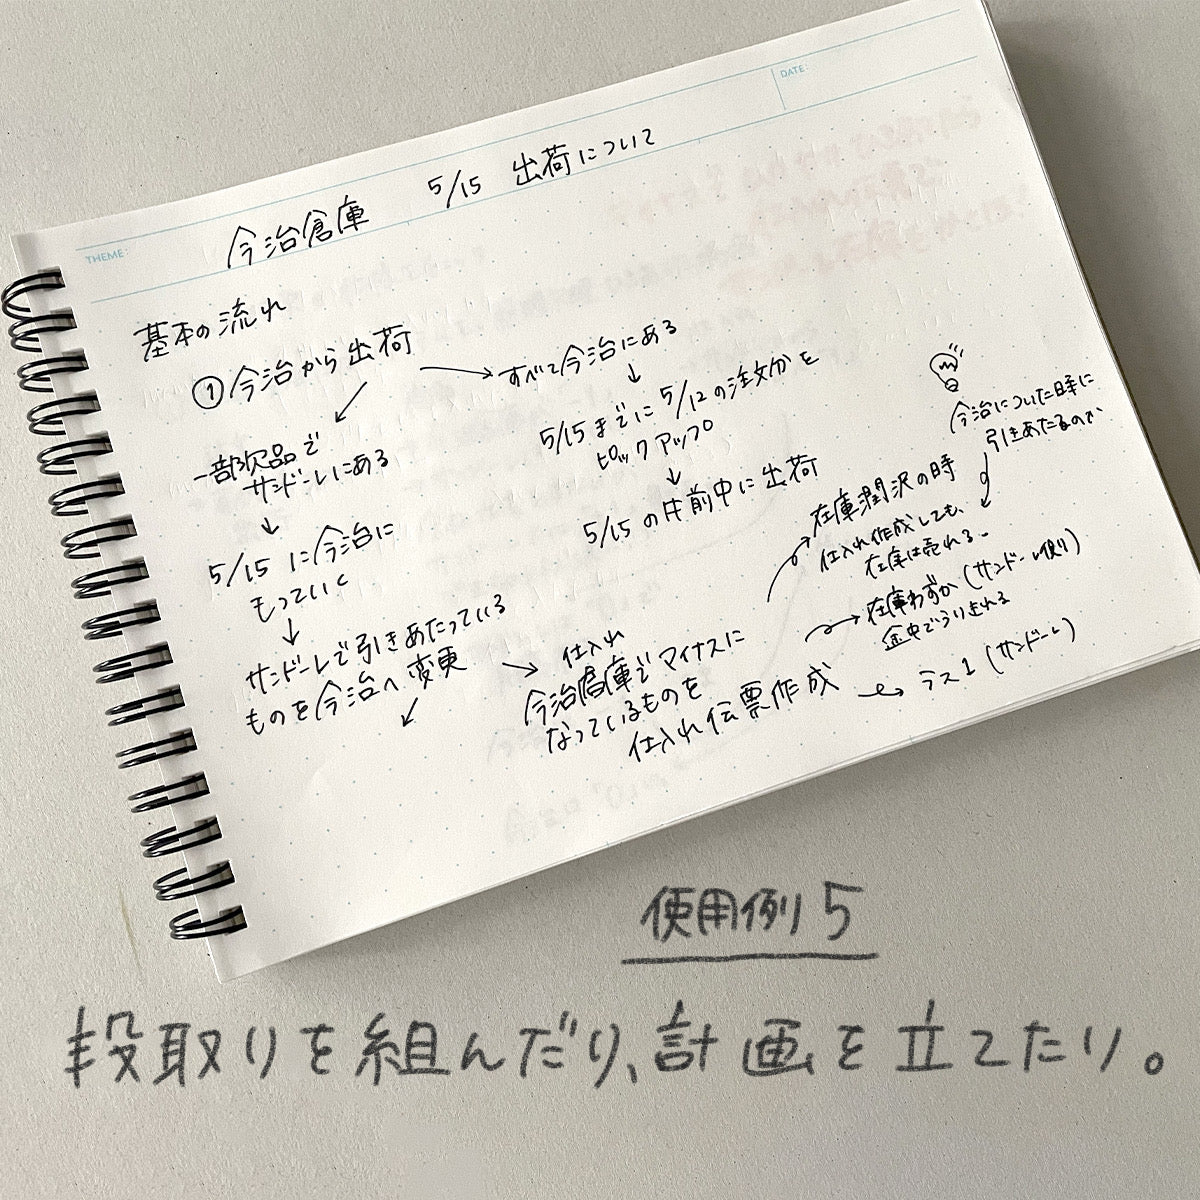 DATE:
THEME:
今治倉庫 5/15 出荷について
基本の流れ
①今治から出荷
すべて今治にある
5/15までに5/12の注文分を
ピックアップ
5/15の午前中に出荷
一部欠品で
サンドールにある
5/15に今治に
もっていく
サンドールで引きあたっている
ものを今治へ変更
仕入れ
今治倉庫でマイナスに
なっているものを
仕入れ伝票作成
今治についた時に
引きあたるのか
在庫潤沢の時
仕入れ作成しても、
在庫は売れる。
在庫わずか(サンドール側)
途中でうり切れる
ラス1(サンドール)
使用例5
段取りを組んだり、計画を立てたり。